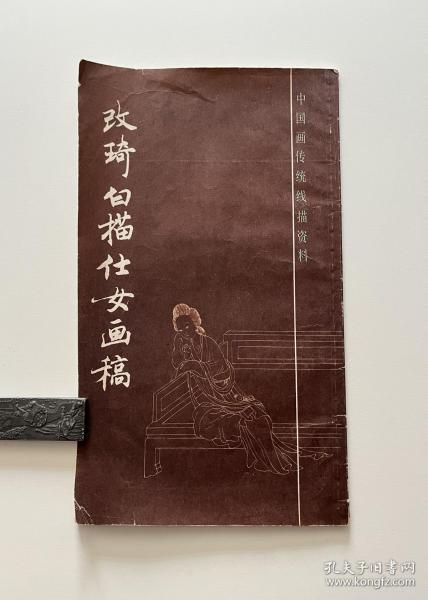 改琦白描仕女画稿
中国画传统线描资料
孔夫子旧书网
www.kongfz.com